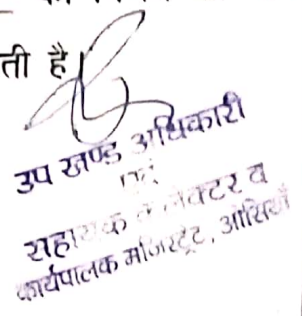 ती है
उप खण्ड अधिकारी
एवं
सहायक कलेक्टर व
कार्यपालक मजिस्ट्रेट, ओसियाँ